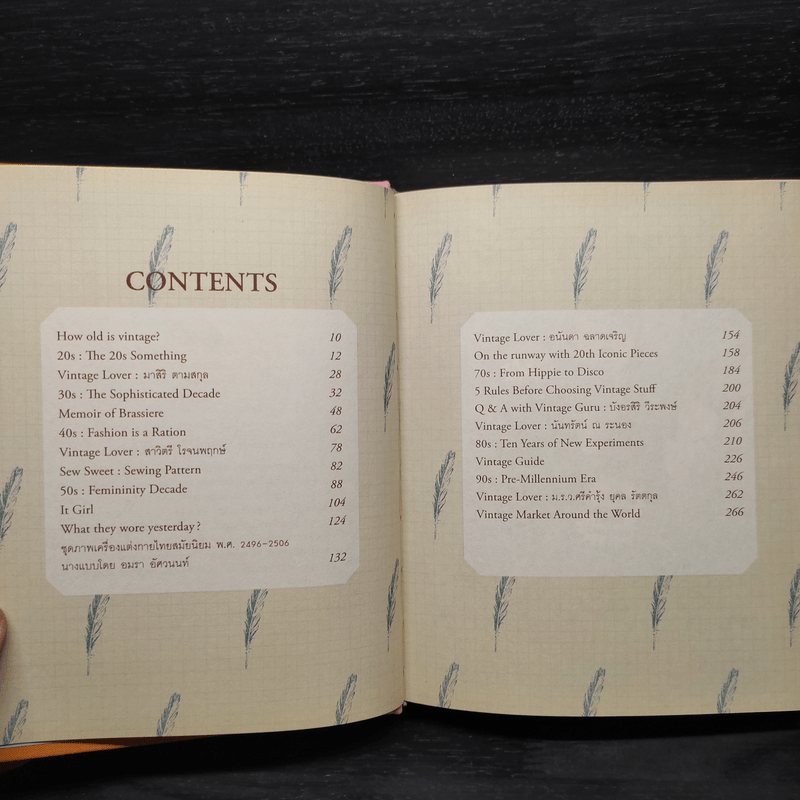 CONTENTS
How old is vintage? 10
20s : The 20s Something 12
Vintage Lover : มาสิริ ตามสกุล 28
30s : The Sophisticated Decade 32
Memoir of Brassiere 48
40s : Fashion is a Ration 62
Vintage Lover : สาวิตรี โรจนพฤกษ์ 78
Sew Sweet : Sewing Pattern 82
50s : Femininity Decade 88
It Girl 104
What they wore yesterday? 124
ชุดภาพเครื่องแต่งกายไทยสมัยนิยม พ.ศ. 2496-2506
นางแบบโดย อมรา อัศวนนท์ 132
Vintage Lover : อนันดา ฉลาดเจริญ 154
On the runway with 20th Iconic Pieces 158
70s : From Hippie to Disco 184
5 Rules Before Choosing Vintage Stuff 200
Q & A with Vintage Guru : บังอรสิริ วีระพงษ์ 204
Vintage Lover : นันทรัตน์ ณ ระนอง 206
80s : Ten Years of New Experiments 210
Vintage Guide 226
90s : Pre-Millennium Era 246
Vintage Lover : ม.ร.ว.ศรีคำรุ้ง ยุคล รัตตกุล 262
Vintage Market Around the World 266